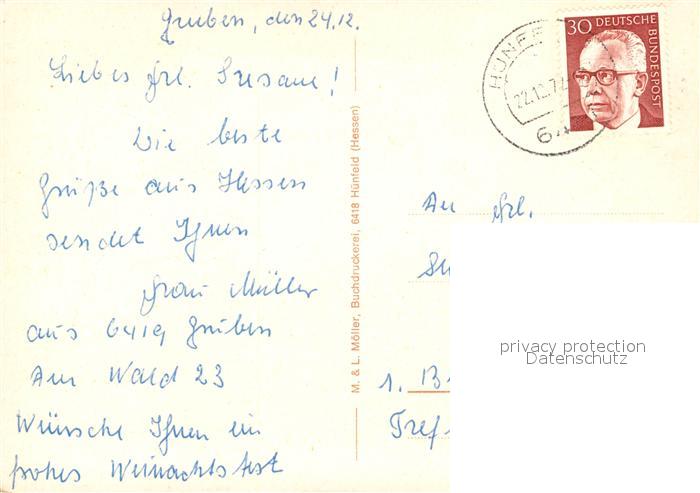 Gruben, den 24.12.
Liebes Frl. Susane!
Die beste
Grüße aus Hessen
sendet Ihnen
Frau Müller
aus 6419 Gruben
Am Wald 23
Wünsche Ihnen ein
frohes Weinachtsfest
M. & L. Möller, Buchdruckerei, 6418 Hünfeld (Hessen)
30 DEUTSCHE
BUNDESPOST
HÜNF
22.12.7
An Frl.
1. B
privacy protection
Datenschutz